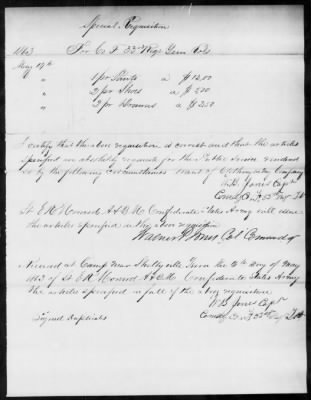 Special Requisition
1863 For Co I 53rd Regt Tenn Vols
May 19th 1 pr Pants a $12.00
" 2 pr Shoes a $
" 2 pr Drawers a $
I certify that the above requisition is correct and that the articles
specified are absolutely requisite for the Public Service rendered
so by the following circumstances want of Clothing in my Company
W B Jones Capt
Comdg Co
Lt E R Confederate States Army will issue
the articles specified in the above requisition
Col Commdg
Received at Camp Near Shelbyville Tenn the day of May
1863 of Lt E R Confederate States Army
the articles specified in full of the above requisition
W B Jones Capt
Signed Duplicates Comdg Co